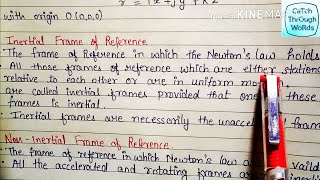 r = ix + jy + kz
with origin O (0,0,0)
KINEMASTER
CatCh
ThRough
WoRds
Inertial Frame of Reference
· The frame of reference in which the Newton's law holds
· All those frames of reference which are either station
relative to each other or are in uniform m
are called inertial frames provided that one these
frames is inertial.
· Inertial frames are necessarily the unaccel fram
Non-inertial Frame of Reference
· The frame of reference in which Newton's law a vaild
· All the accelerated and rotating frames ar inerti